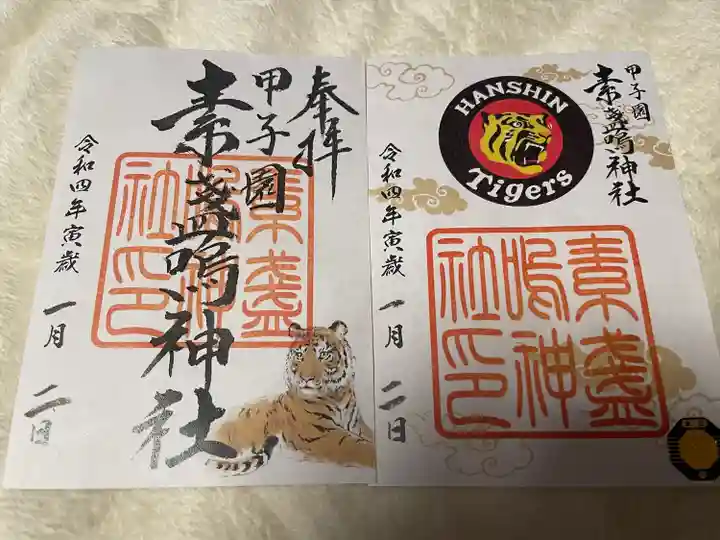 奉拝
甲子園
素盞嗚神社
令和四年寅歳 一月 二日
素盞
嗚神
社印
甲子園
素盞嗚神社
HANSHIN
Tigers
令和四年寅歳 一月 二日
素盞
嗚神
社印